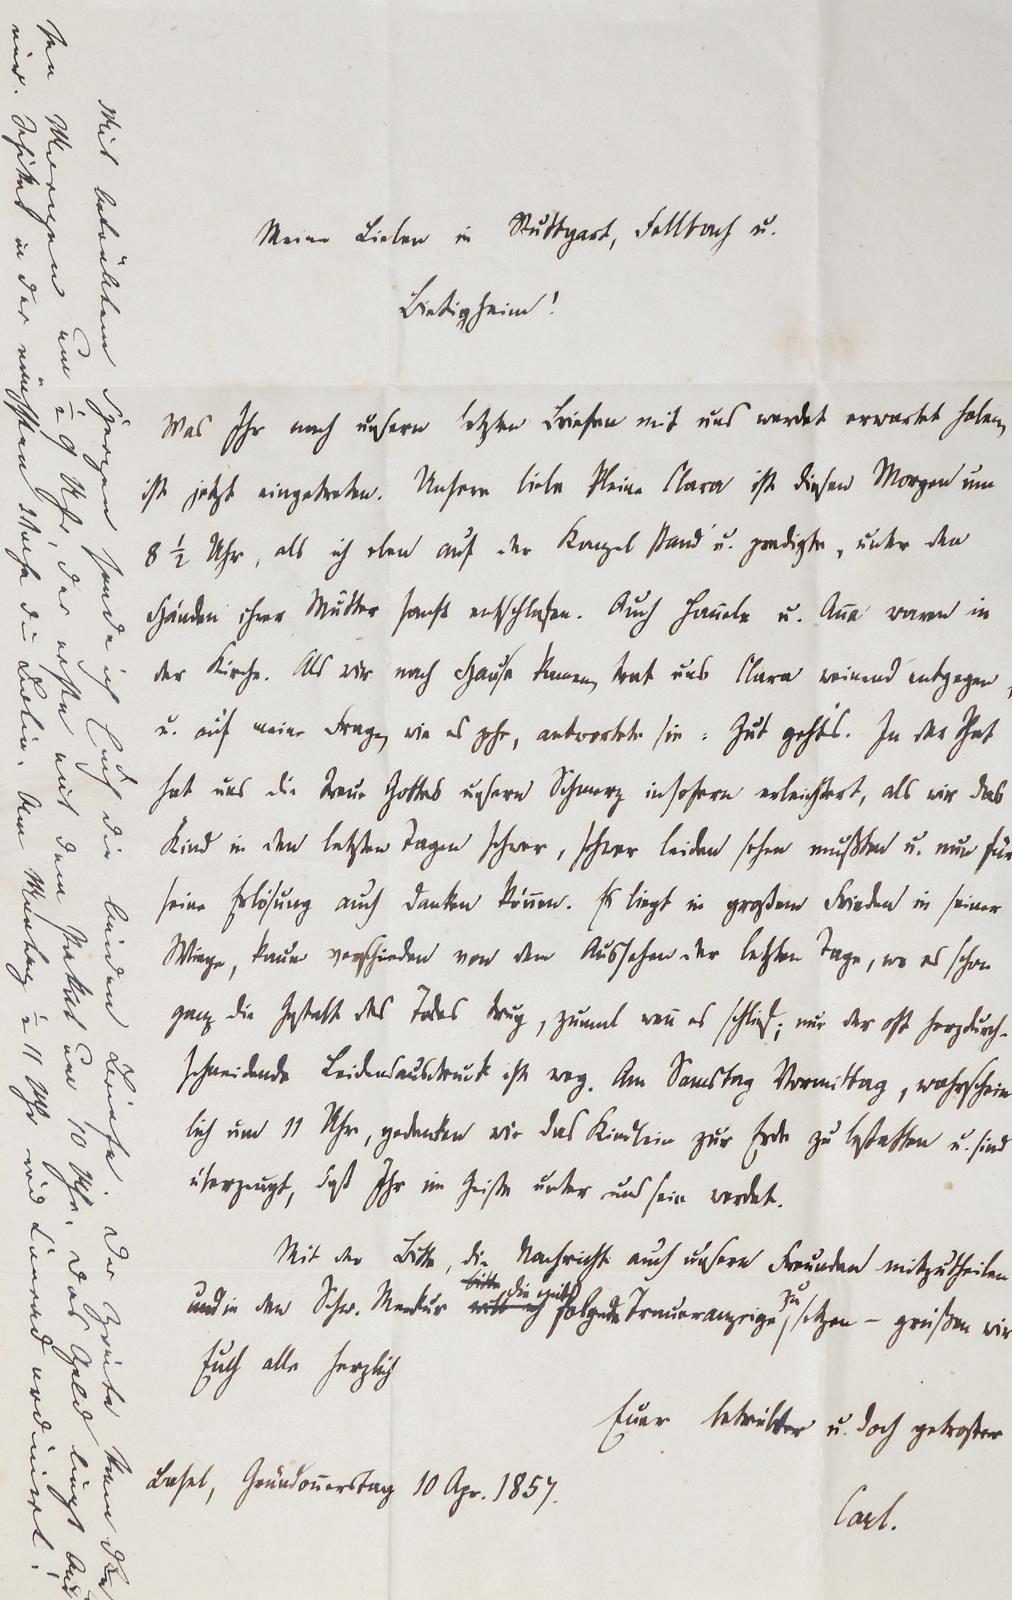 Meine Lieben in Stuttgart, Fellbach u.
Bietigheim!
Was Ihr nach unsern letzten Briefen mit uns werdet erwartet haben,
ist jetzt eingetreten. Unsere liebe kleine Clara ist diesen Morgen um
8 ½ Uhr, als ich eben auf der Kanzel stand u. predigte, unter den
Händen ihrer Mutter sanft entschlafen. Auch Hañele u. Aña waren in
der Kirche. Als wir nach Hause kamen, trat uns Clara weinend entgegen,
u. auf meine Frage, wie es gehe, antwortete sie: Gut geht's. In der That
hat uns die Treue Gottes unsern Schmerz insofern erleichtert, als wir das
Kind in den letzten Tagen schwer, schwer leiden sehen mußten u. nun für
seine Erlösung auch danken köñen. Es liegt in großem Frieden in seiner
Wiege, kaum verschieden von dem Aussehen der letzten Tage, wo es schon
ganz die Gestalt des Todes trug, zumal weñ es schlief; nur der oft herzdurch-
schneidende Leidensausdruck ist weg. Am Samstag Vormittag, wahrschein
lich um 11 Uhr, gedenken wir das Kindlein zur Erde zu bestatten u. sind
überzeugt, daß Ihr im Geiste unter uns sein werdet.
Mit der Bitte, die Nachricht auch unsern Freunden mitzutheilen
und in den Schw. Merkur folgende Traueranzeige zu setzen – grüßen wir
Euch alle herzlich
Euer betrübter u. doch getroster
Carl.
Basel, Gründoñerstag 10 Apr. 1857.
Mit betrübtem Herzen sende ich Euch die beiden Briefe. Der Heute kam
den Morgen um ½ 9 Uhr, der erste mit dem Paket um 10 Uhr. Das Geld liegt
wird. Schickt in der nächsten Woche die Am Montag ½ 11 Uhr wird ordinirt!